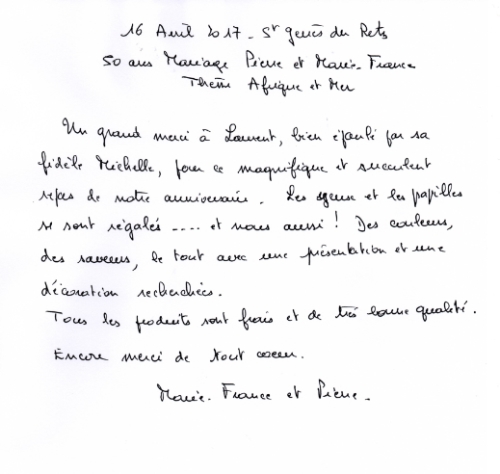 16 Avril 2017 - St Genès du Retz
50 ans Mariage Pierre et Marie-France
Thème Afrique et Mer
Un grand merci à Laurent, bien épaulé par sa
fidèle Michelle, pour ce magnifique et succulent
repas de notre anniversaire. Les yeux et les papilles
se sont régalés .... et nous aussi ! Des couleurs,
des saveurs, le tout avec une présentation et une
décoration recherchées.
Tous les produits sont frais et de très bonne qualité.
Encore merci de tout coeur.
Marie-France et Pierre -